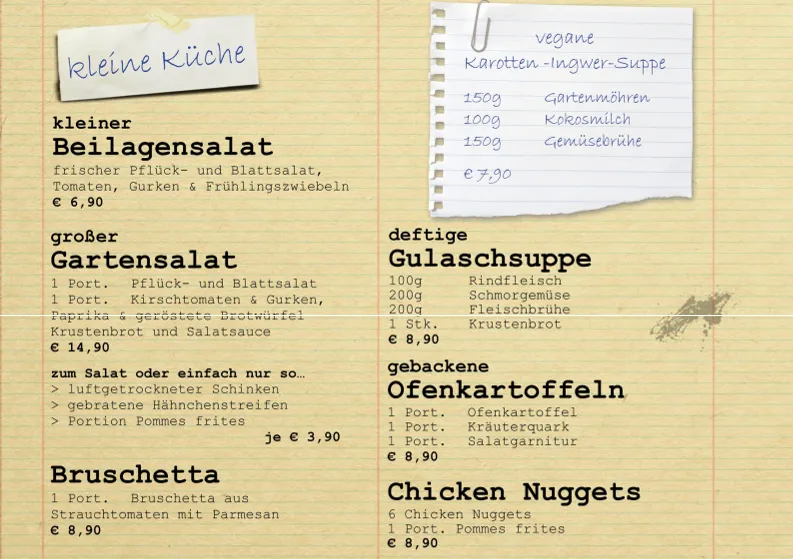 kleine Küche
kleiner
Beilagensalat
frischer Pflück- und Blattsalat,
Tomaten, Gurken & Frühlingszwiebeln
€ 6,90
großer
Gartensalat
1 Port. Pflück- und Blattsalat
1 Port. Kirschtomaten & Gurken,
Paprika & geröstete Brotwürfel
Krustenbrot und Salatsauce
€ 14,90
zum Salat oder einfach nur so…
> luftgetrockneter Schinken
> gebratene Hähnchenstreifen
> Portion Pommes frites
je € 3,90
Bruschetta
1 Port. Bruschetta aus
Strauchtomaten mit Parmesan
€ 8,90
vegane
Karotten -Ingwer-Suppe
150g Gartenmöhren
100g Kokosmilch
150g Gemüsebrühe
€ 7,90
deftige
Gulaschsuppe
100g Rindfleisch
200g Schmorgemüse
200g Fleischbrühe
1 Stk. Krustenbrot
€ 8,90
gebackene
Ofenkartoffeln
1 Port. Ofenkartoffel
1 Port. Kräuterquark
1 Port. Salatgarnitur
€ 8,90
Chicken Nuggets
6 Chicken Nuggets
1 Port. Pommes frites
€ 8,90